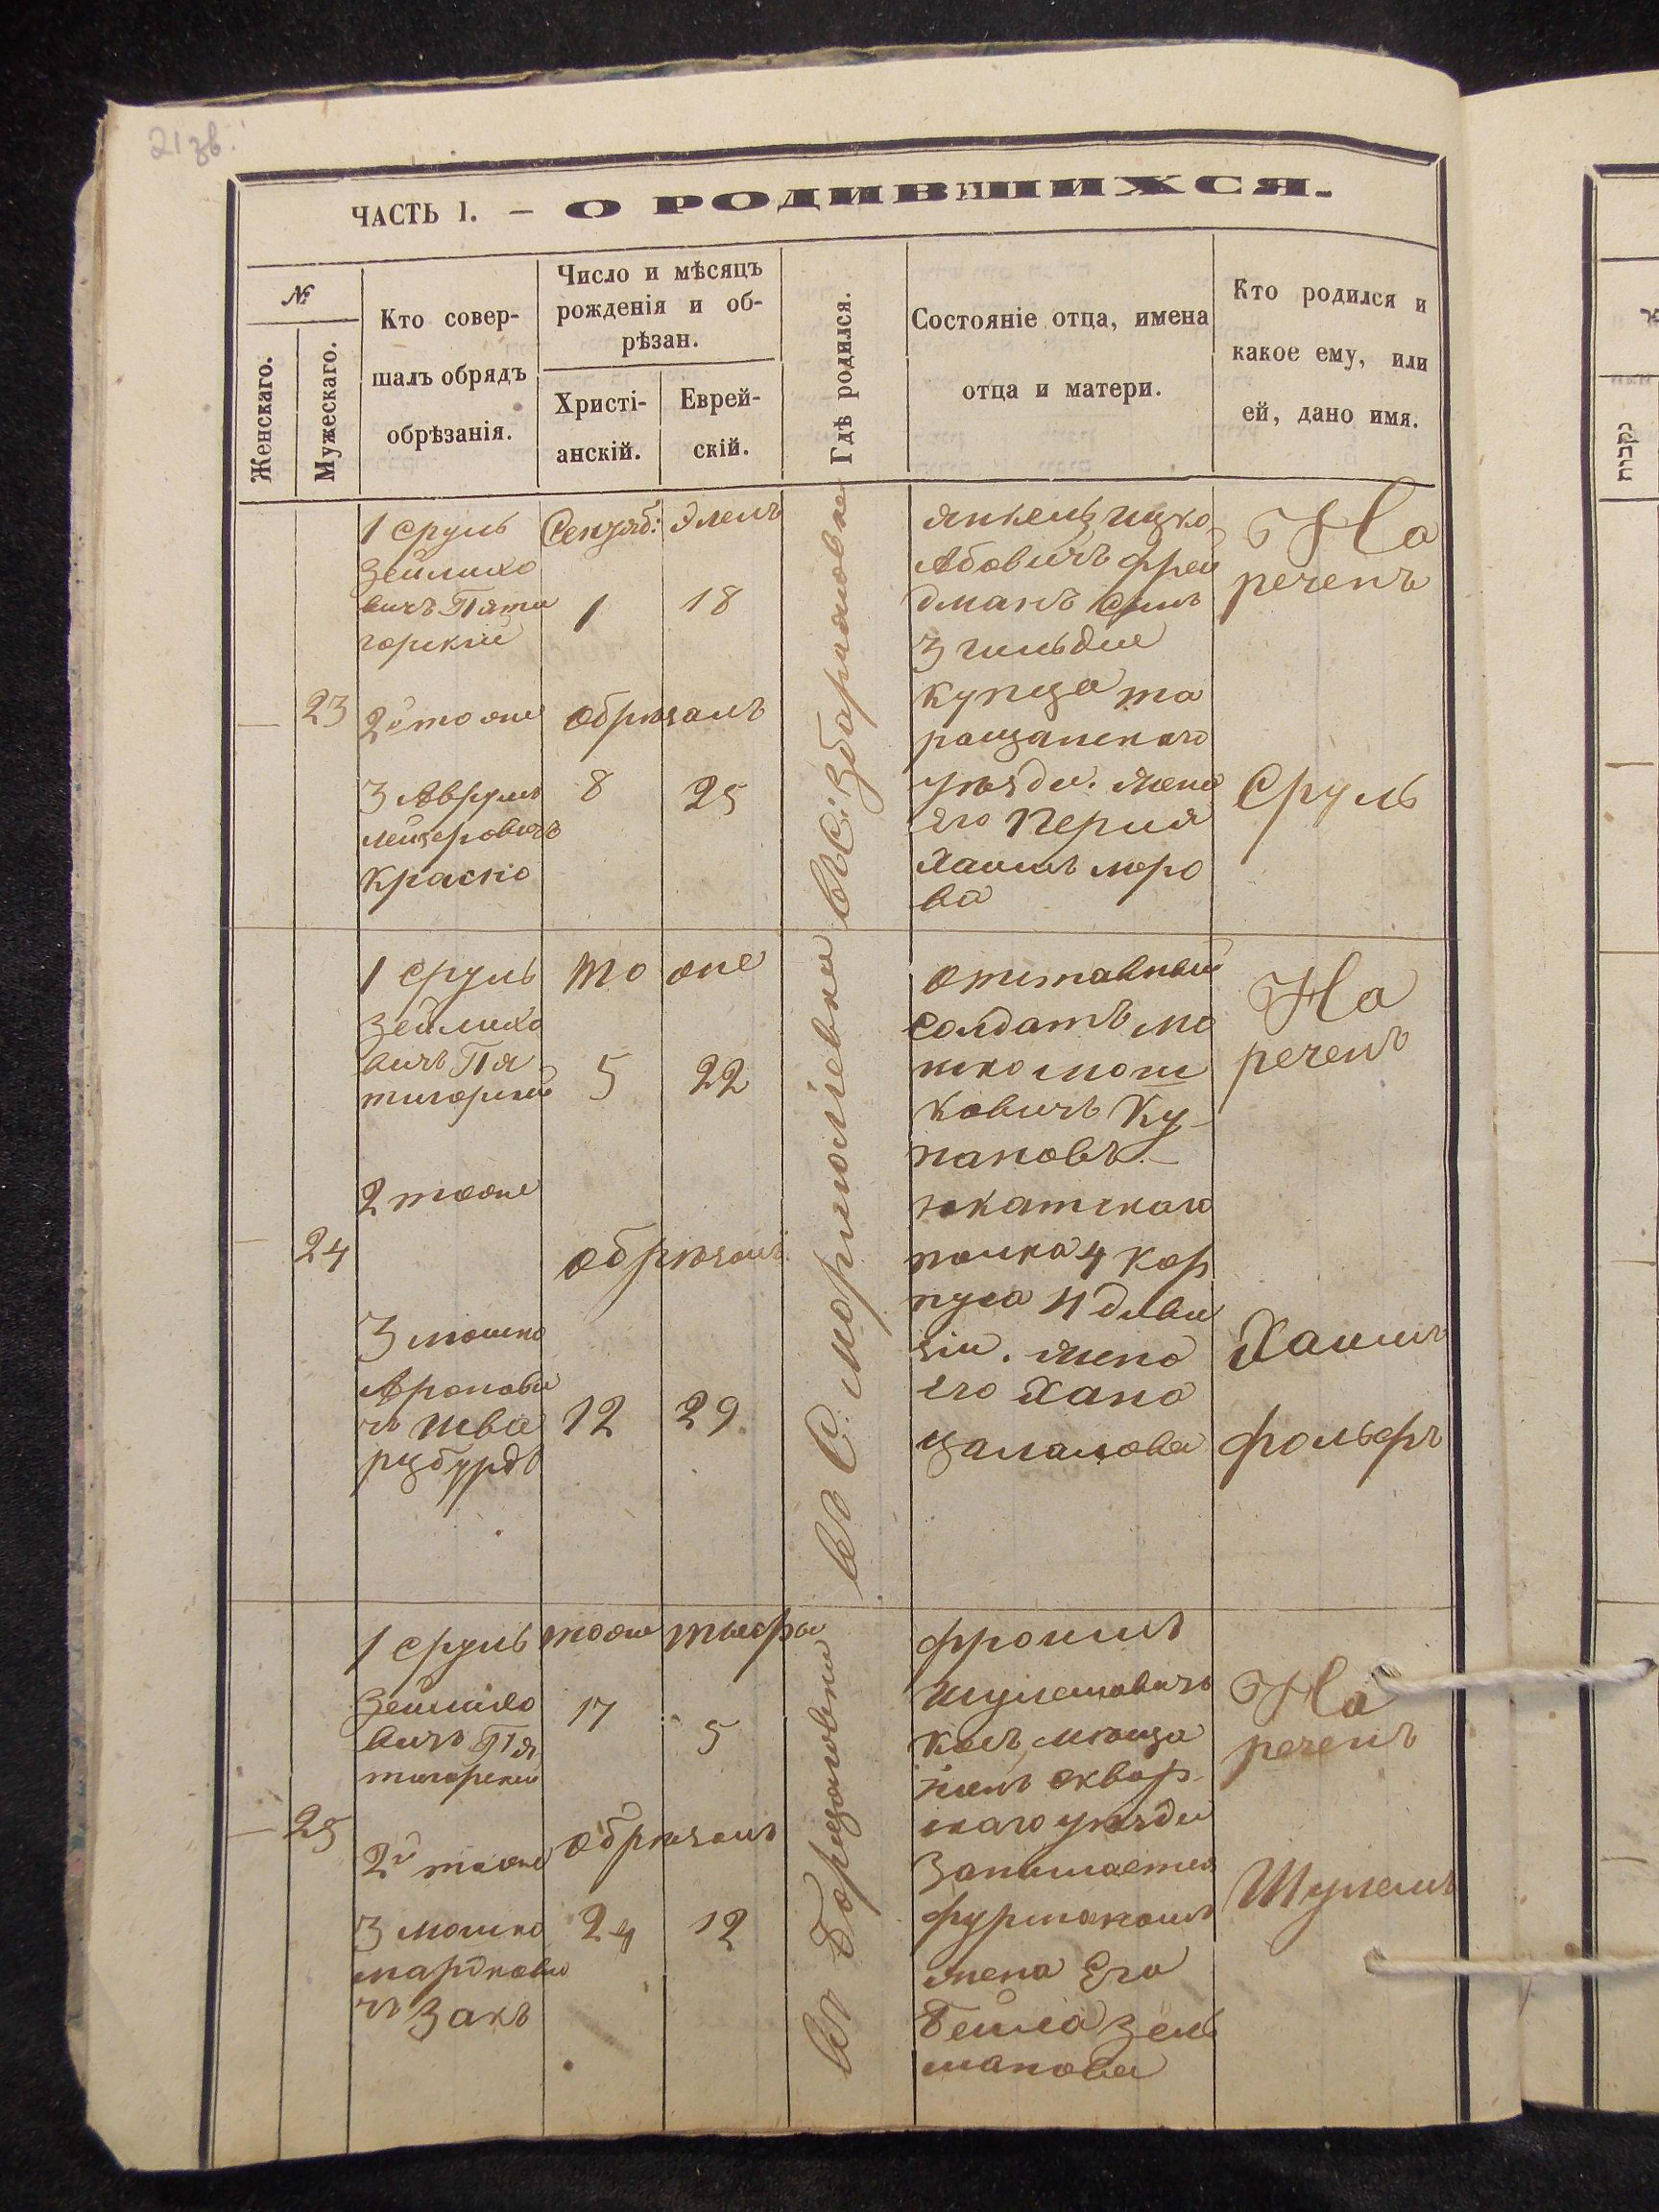 21 зв.
ЧАСТЬ I. — О РОДИВШИХСЯ.
№
Женскаго.
Мужескаго.
Кто совер-
шалъ обрядъ
обрѣзанія.
Число и мѣсяцъ
рожденія и об-
рѣзан.
Христі-
анскій.
Еврей-
скій.
Гдѣ родился.
Состояніе отца, имена
отца и матери.
Кто родился и
какое ему, или
ей, дано имя.
— 23
1 Сруль
Зейлико
вичъ Пяти
горскій
2й тоже
3 Аврумъ
Лейзеровичъ
Красно
Сентяб: Элелъ
1 18
обрѣзанъ
8 25
въ С: Збаражовке
Янкель Ицко
Абовичъ Фрей
дманъ Сынъ
3 гильдии
купца та
ращанскаго
уѣзда. жена
его Перля
Хаимъ меро
ва
На
реченъ
Сруль
— 24
1 Сруль
Зейлико
вичъ Пя
тигорскій
2 тоже
3 Мошко
Аронови
чъ Шва
рцбурдъ
то же
5 22
обрѣзанъ
12 29
въ С
отставный
солдатъ Мо
шко Мош
ковичъ Ку-
пановъ
полка 4 Кор
пуса 4 диви
зіи. жена
его Хана
На
реченъ
Хаимъ
Фольфъ
— 25
1 Сруль
Зейлико
вичъ Пя
тигорскій
2й тоже
3 Мошко
Мардкови
чъ Закъ
тоже
17 5
обрѣзанъ
24 12
въ
Фроимъ
Шулемовичъ
Кацъ мѣща
нинъ Сквир-
скаго уѣзда
Занимается
фурманомъ
жена Его
Бейла Зель
манова
На
реченъ
Шулемъ